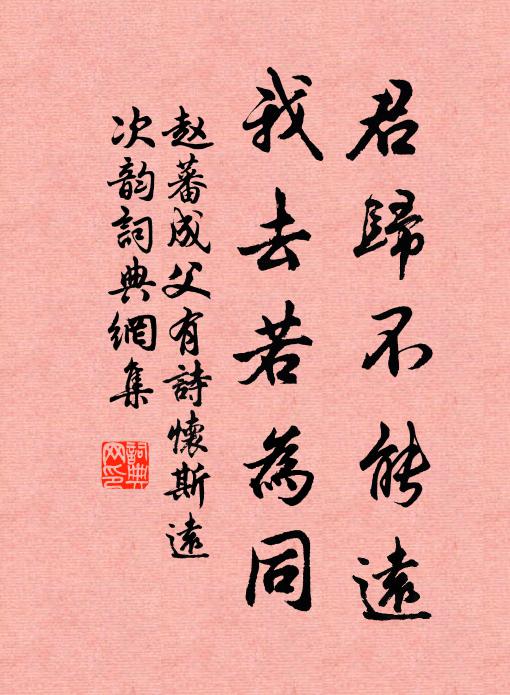 君歸不能遠
我去若為同
赵蕃成父有詩懷斯遠
次韵詞典網集
詞典网印